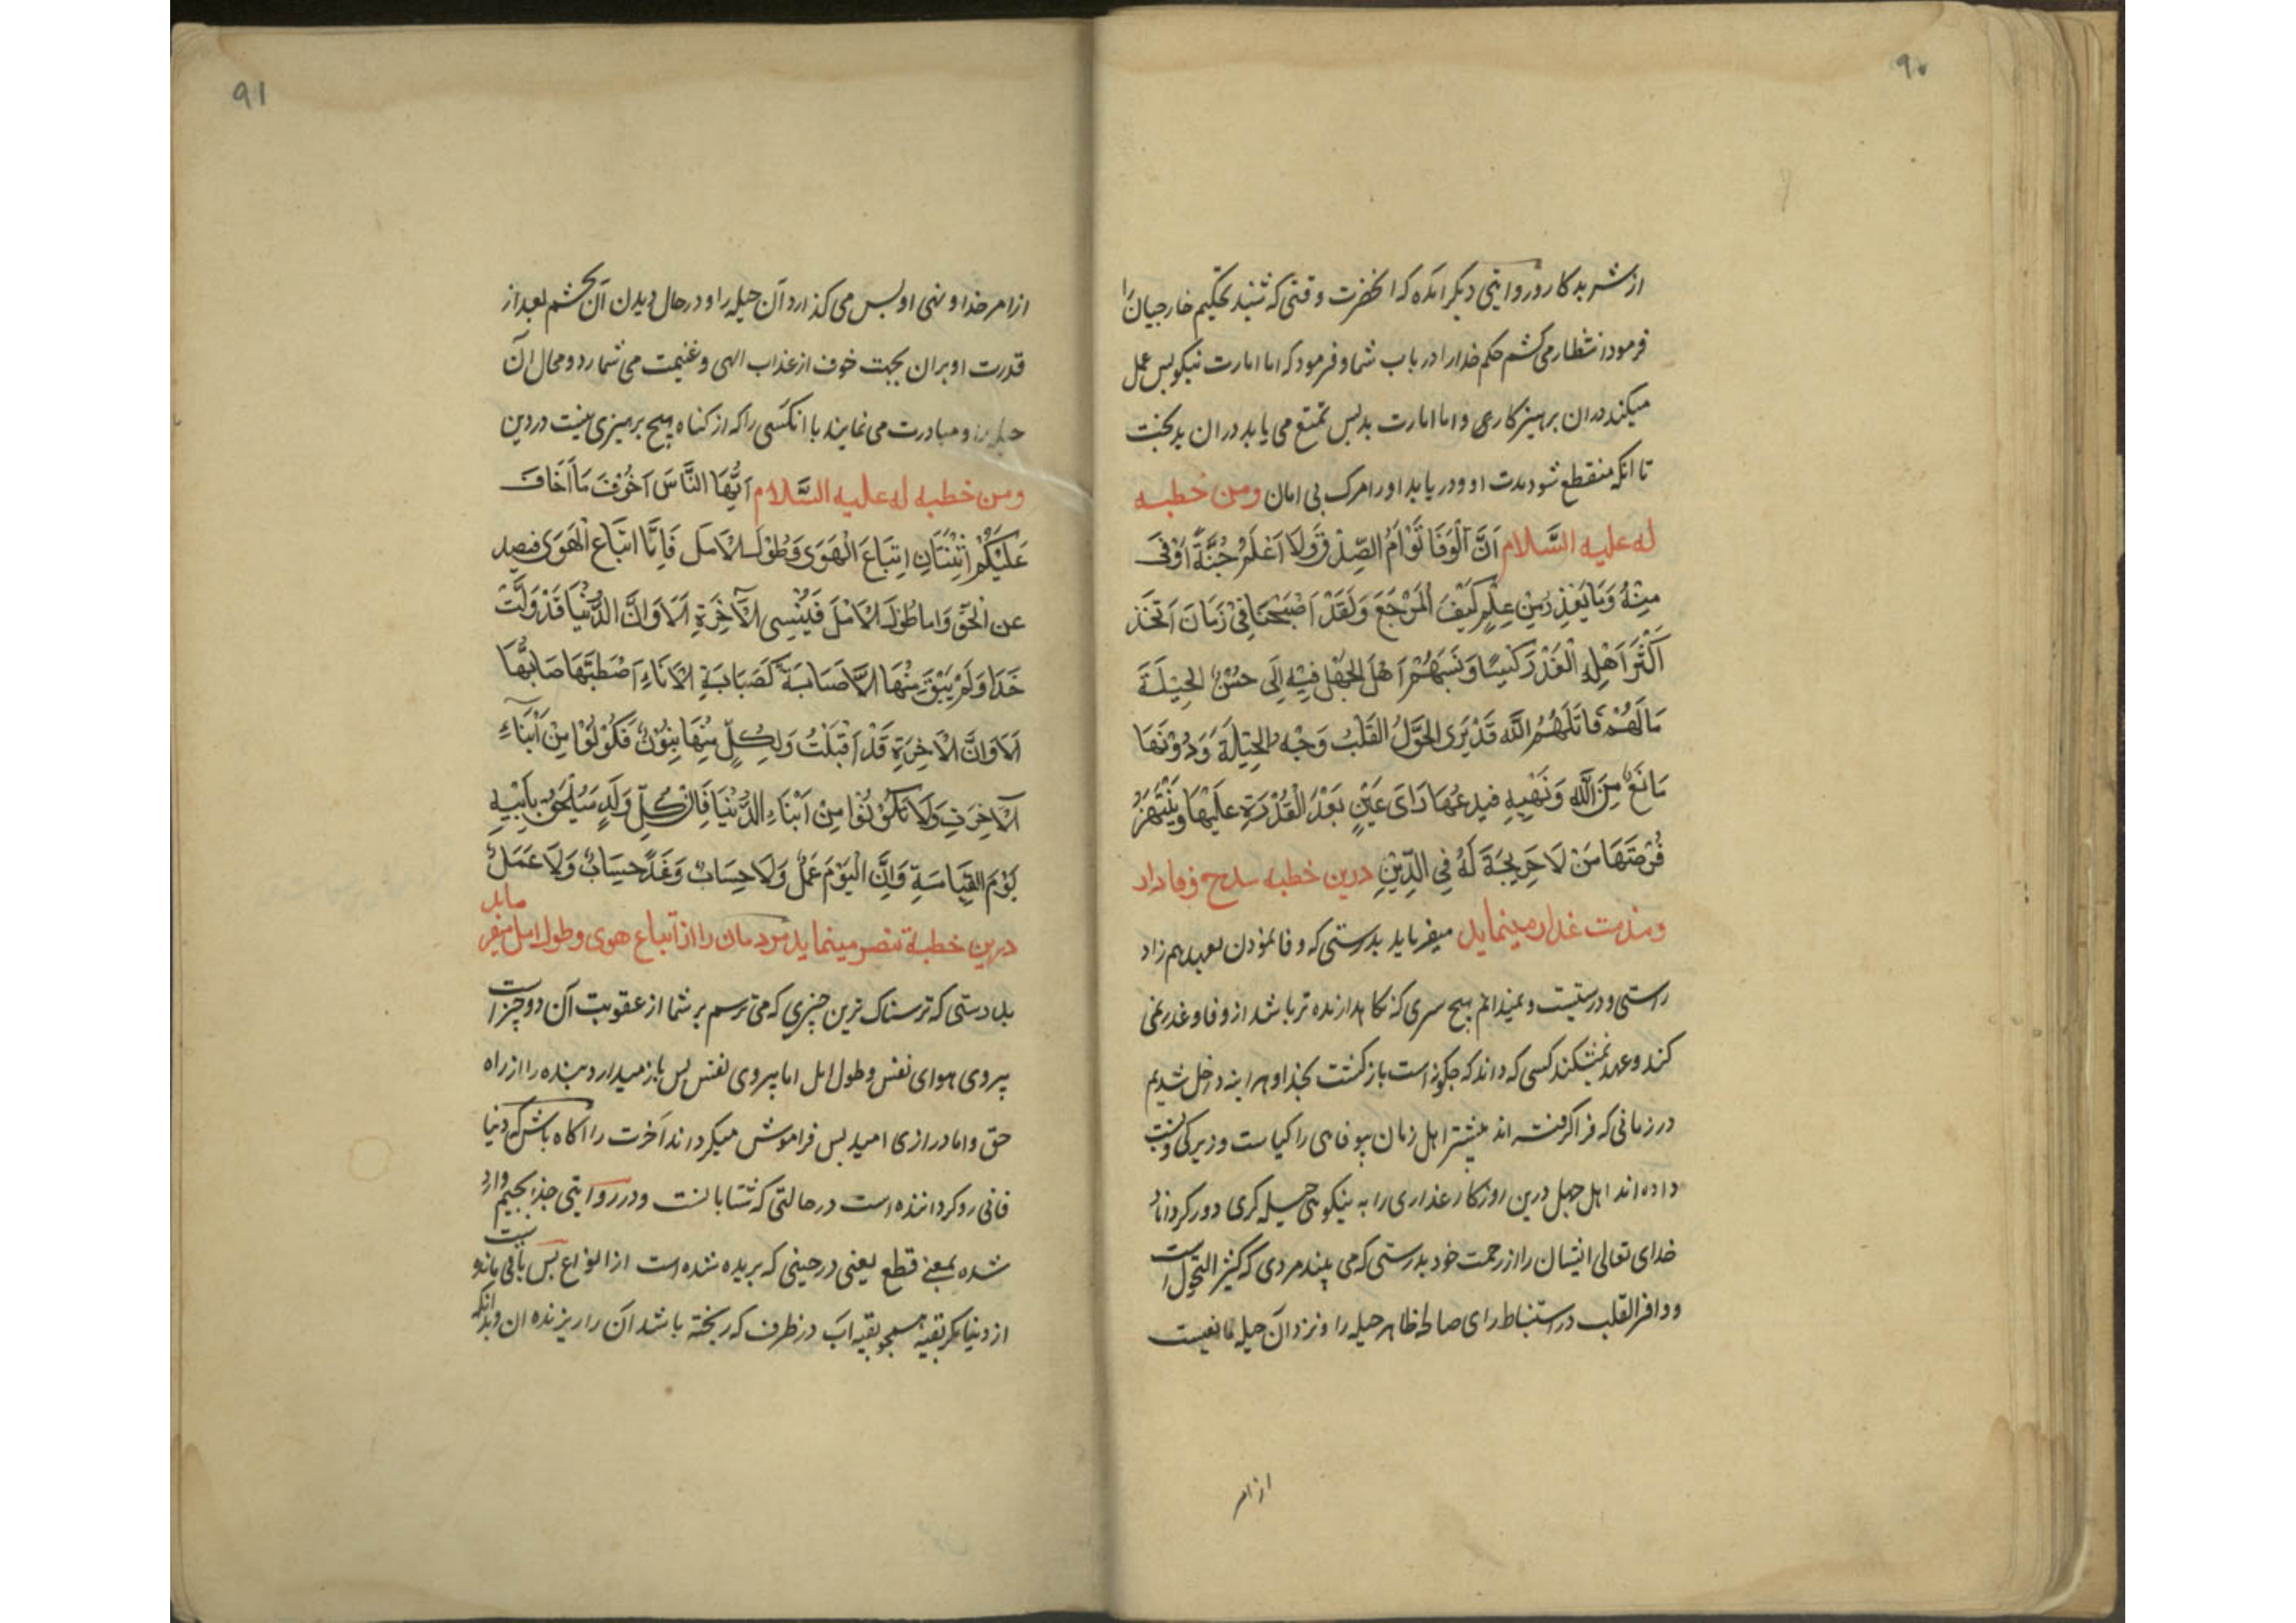 ۹۰
از شر بدکار و در روایتی دیگر آمده که آنحضرت وقتی که شنید تحکیم خارجیان را
فرمود انتظار می کشم حکم خدا را در باب شما و فرمود که اما امارت نیکو پس عمل
میکند در ان پرهیزکاری و اما امارت بد پس تمتع می یابد در ان بدبخت
تا انکه منقطع شود مدت او و در یابد او را مرک بی امان ومن خطبه
له علیه السَّلام اَنَّ الْوَفَا تَوْاَمُ الصِّدْقِ وَلَا اَعْلَمُ جُنَّةً اَوْقٰى
مِنْهُ وَمَا يَغْدِرُ مِنْ عِلْمٍ كَيْفَ الْمَرْجَعَ وَلَقَدْ اَصْبَحْنَا فِيْ زَمَانَ اَتَّخَذَ
اَكْثَرَ اَهْلِهِ الْغَدْرَ كَيْسًا وَنَسَبَهُمْ اَهْلَ الْجَهْلِ فِيْهِ اِلَى حُسْنِ الْحِيْلَةَ
مَا لَهُمْ قَاتَلَهُمُ اللّٰه قَدْ يَرَى الْحُوَّلُ الْقُلَّبُ وَجْهِ الْحِيْلَةَ وَدُوْنَهَا
مَانِعٌ مِنَ اللّٰهِ وَنَهْيِهِ فيدعُهَا رَاىَ عَيْنٍ بَعْدَ الْقُدْرَةِ عَلَيْهَا وَيَنْتَهِزُ
فُرْصَتَهَا مَنْ لَا حَرِيْجَةَ لَهُ فِي الدِّيْنِ درین خطبه مدح وفادار
و مذمت غدار مینماید میفرماید بدرستی که وفا نمودن بعهد هم زاد
راستی و درستیست و نمیدانم هیچ سری که نکاهدارنده تر باشد از وفا و غدر نمی
کند و عهد نمیشکند کسی که داند که چکونه است بازکشت بخدا و هر اینه داخل شدیم
در زمانی که فرا کرفته اند بیشتر اهل زمان بیوفایی را کیاست و زیرکی و نسبت
داده اند اهل جهل درین روزکار غداری را به نیکویی حیله کری دور کرداناد
خدای تعالی ایشان را از رحمت خود بدرستی که می بیند مردی که کثیر التحول است
و وافر القلب در استنباط رای صالح ظاهر حیله را و نزد آن حیله مانعیست
از امر
۹۱
از امر خدا و نهی او پس می کذارد آن حیله را و در حال دیدن آن بچشم بعد از
قدرت او بران بجهت خوف از عذاب الهی و غنیمت می شمارد و محال آن
حیله را و مبادرت می نماید با انکسی را که از کناه هیچ پرهیزی نیست در دین
ومن خطبه له علیه السَّلام اَیُّهَا النَّاسَ اَخْوَفَ مَا اَخَافَ
عَلَيْكُمْ اَثْنَتَانِ اِتِبَاعَ الْهَوَى وَطُوْلَ الْاَمَل فَاِمَّا اتبَاع الْهَوَى فيصد
عن الْحَقَ وَاما طُوْلَ الْاَمَلَ فَيُنْسِى الْاٰخِرَةِ اَلَا وَاِنَّ الدُّنْيَا قَدْ وَلَّتْ
حَذَاءَ وَلَمْ يَبْقَ مِنْهَا اِلَّا صَبَابَةٌ كَصَبَابَةِ الْاَنَاءِ اَصْطَبَّهَا صَابُّهَا
اَلَا وَاِنَّ الْاٰخِرَةِ قَدْ اَقْبَلَتْ وَلِكُلٍّ مِنْهَا بَنُوْنَ فَكُوْنُوْا مِنْ اَبْنَاءِ
الْاٰخِرَةِ وَلَا تَكُوْنُوْا مِنْ اَبْنَاءِ الدُّنْيَا فَاِنَّ كُلَّ وَلَدٍ سَيُلْحَقُ بِاَبِيْهِ
يَوْمَ الْقِيَامَةِ وَاِنَّ الْيَوْمَ عَمَلٌ وَلَا حِسَابٌ وَغَدًا حِسَابٌ وَلَا عَمَلٌ
درین خطبه مینماید مردمان را از اتباع هوی و طول امل میفرماید
بدرستی که ترسناک ترین چیزی که می ترسم بر شما از عقوبت آن دو چیز است
پیروی هوای نفس و طول امل اما پیروی نفس پس باز میدارد بنده را از راه
حق و اما درازی امید پس فراموش میکرداند آخرت را آکاه باش که دنیا
فانی رو کرداننده است در حالتی که شتابانست و در روایتی جذا بجیم وارد
شده بمعنی قطع یعنی در حینی که بریده شده است از انواع پس باقی نمانده
از دنیا مکر بقیه همچو بقیه آب در ظرف که ریخته باشد آن را ریزنده ان و بدانکه